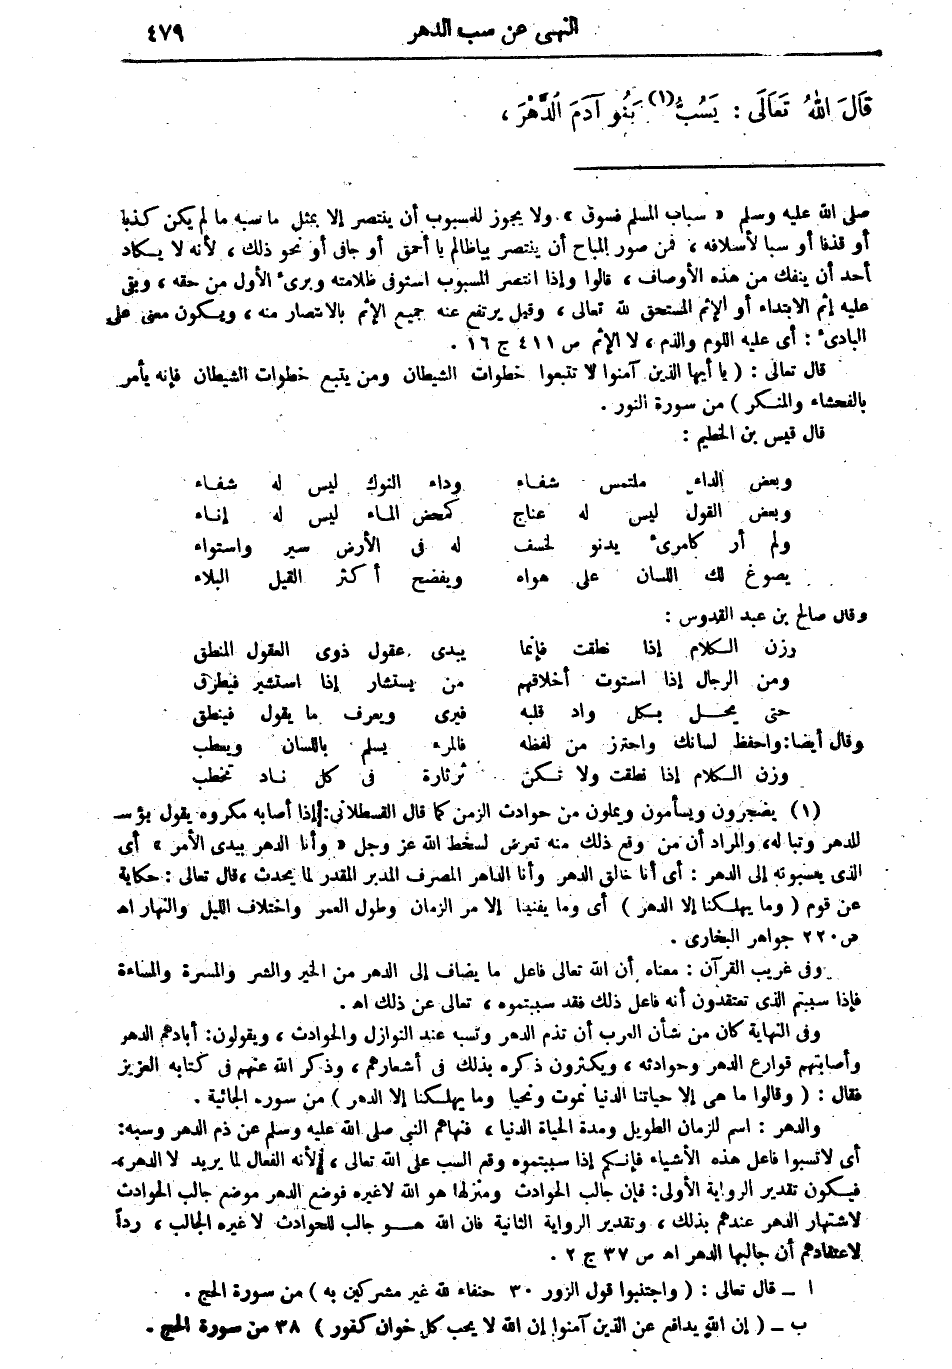 النهى عن سب الدهر ٤٧٩
قَالَ اللهُ تَعَالَى : يَسُبُّ(١) بَنُو آدَمَ الدَّهْرَ ،
صلى الله عليه وسلم « سباب المسلم فسوق » ولا يجوز للمسبوب أن ينتصر إلا بمثل ما سبه ما لم يكن كذبا
أو قذفا أو سبا لأسلافه ، فمن صور المباح أن ينتصر بياظالم يا أحمق أو جافى أو نحو ذلك ، لأنه لا يكاد
أحد أن ينفك من هذه الأوصاف ، قالوا وإذا انتصر المسبوب استوفى ظلامته وبرىء الأول من حقه ، وبقى
عليه إثم الابتداء أو الإثم المستحق لله تعالى ، وقيل يرتفع عنه جميع الإثم بالانتصار منه ، ويكون معنى على
البادىء : أى عليه اللوم والذم ، لا الإثم ص ٤١١ ج ١٦ .
قال تعالى : ( يا أيها الذين آمنوا لا تتبعوا خطوات الشيطان ومن يتبع خطوات الشيطان فإنه يأمر
بالفحشاء والمنكر ) من سورة النور .
قال قيس بن الخطيم :
وبعض الداء ملتمس شفاء وداء النوك ليس له شفاء
وبعض القول ليس له عناج كمحض الماء ليس له إناء
ولم أر كامرىء يدنو لخسف له فى الأرض سير واستواء
يصوغ لك اللسان على هواه ويفضح أكثر القيل البلاء
وقال صالح بن عبد القدوس :
وزن الكلام إذا نطقت فإنما يبدى عقول ذوى العقول المنطق
ومن الرجال إذا استوت أخلاقهم من يستشار إذا استشير فيطرق
حتى يحل بكل واد قلبه فيرى ويعرف ما يقول فينطق
وقال أيضا: واحفظ لسانك واحترز من لفظه فالمرء يسلم باللسان ويعطب
وزن الكلام إذا نطقت ولا تكن ثرثارة فى كل ناد تخطب
(١) يضجرون ويسأمون ويملون من حوادث الزمن كما قال القسطلانى: إذا أصابه مكروه يقول بؤسـ
للدهر وتبا له، والمراد أن من وقع ذلك منه تعرض لسخط الله عز وجل « وأنا الدهر بيدى الأمر » أى
الذى يعسبونه إلى الدهر : أى أنا خالق الدهر وأنا الداهر المصرف المدبر المقدر لما يحدث ، قال تعالى : حكاية
عن قوم ( وما يهلكنا إلا الدهر ) أى وما يفنينا إلا مر الزمان وطول العمر واختلاف الليل والنهار اهـ
ص ٢٢٠ جواهر البخارى .
وفى غريب القرآن : معناه أن الله تعالى فاعل ما يضاف إلى الدهر من الخير والشر والمسرة والمساءة
فإذا سببتم الذى تعتقدون أنه فاعل ذلك فقد سببتموه ، تعالى عن ذلك اهـ .
وفى النهاية كان من شأن العرب أن تذم الدهر وتسبه عند النوازل والحوادث ، ويقولون: أبادهم الدهر
وأصابتهم قوارع الدهر وحوادثه ، ويكثرون ذكره بذلك فى أشعارهم ، وذكر الله عنهم فى كتابه العزيز
فقال : ( وقالوا ما هى إلا حياتنا الدنيا نموت ونحيا وما يهلكنا إلا الدهر ) من سورة الجاثية .
والدهر : اسم للزمان الطويل ومدة الحياة الدنيا ، فنهاهم النبى صلى الله عليه وسلم عن ذم الدهر وسبه:
أى لاتسبوا فاعل هذه الأشياء فإنكم إذا سببتموه وقع السب على الله تعالى ، لأنه الفعال لما يريد لا الدهر،
فيكون تقدير الرواية الأولى: فإن جالب الحوادث ومنزلها هو الله لاغيره فوضع الدهر موضع جالب الحوادث
لاشتهار الدهر عندهم بذلك ، وتقدير الرواية الثانية فان الله هو جالب للحوادث لا غيره الجالب ، رداً
لاعتقادهم أن جالبها الدهر اهـ ص ٣٧ ج ٢ .
ا ــ قال تعالى : ( واجتنبوا قول الزور ٣٠ حنفاء لله غير مشركين به ) من سورة الحج .
ب ــ ( إن الله يدافع عن الذين آمنوا إن الله لا يحب كل خوان كفور ) ٣٨ من سورة الحج .